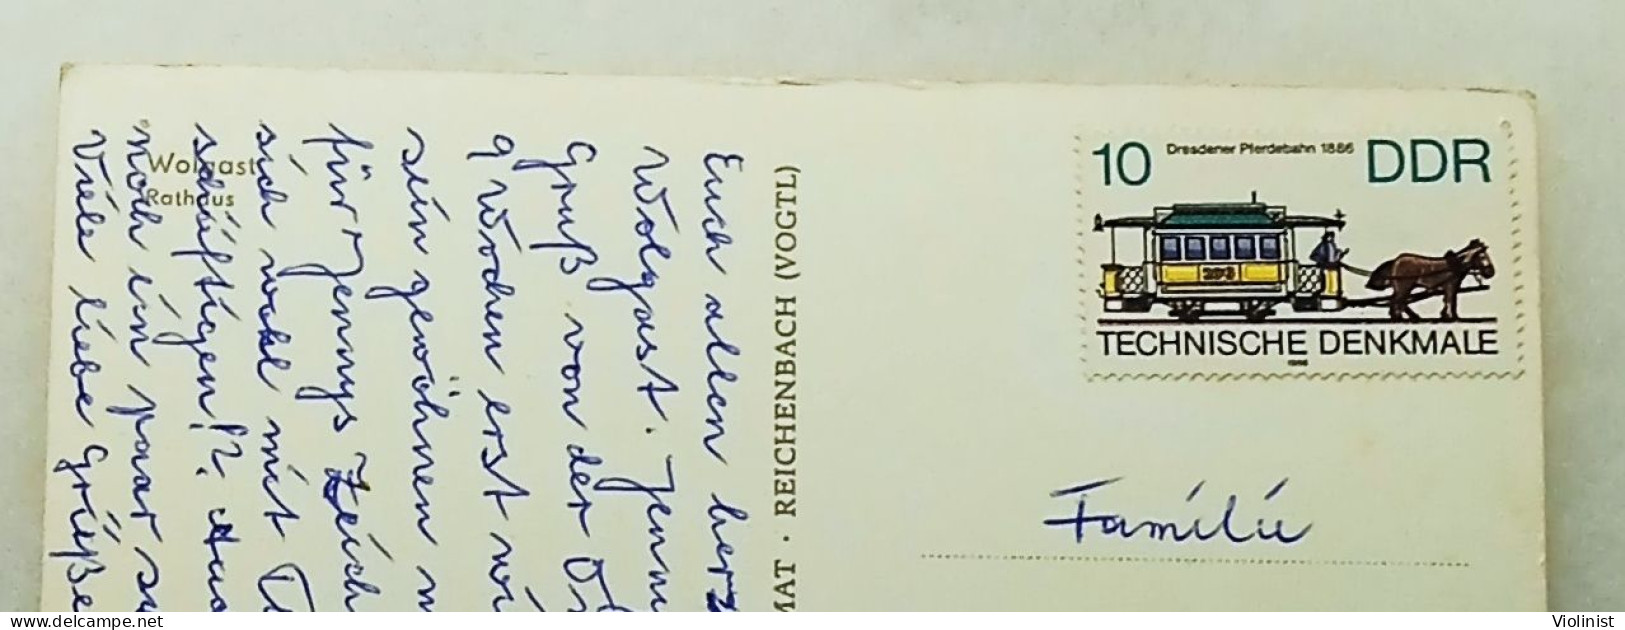 Wolgast
Rathaus
Euch allen
Wolgast.
Gruß von der
9 Wochen erst
sein gewöhnen
für Jennys
sich wohl mit
schäftigen!?
noch ein paar
Viele liebe Grüße
REICHENBACH (VOGTL)
10 Dresdener Pferdebahn 1886 DDR
203
TECHNISCHE DENKMALE
1986
Familie
Violinist